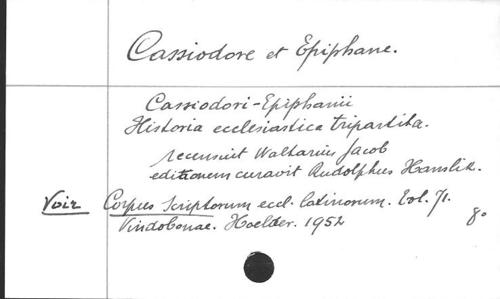 Cassiodore et Epiphane.
Cassiodori-Epiphanii
Historia ecclesiastica tripartita.
recensuit Waltarius Jacob
editionem curavit Rudolphus Hanslik.
Voir Corpus Scriptorum eccl. latinorum. Vol. 71.
Vindobonae. Hoelder. 1952
8º